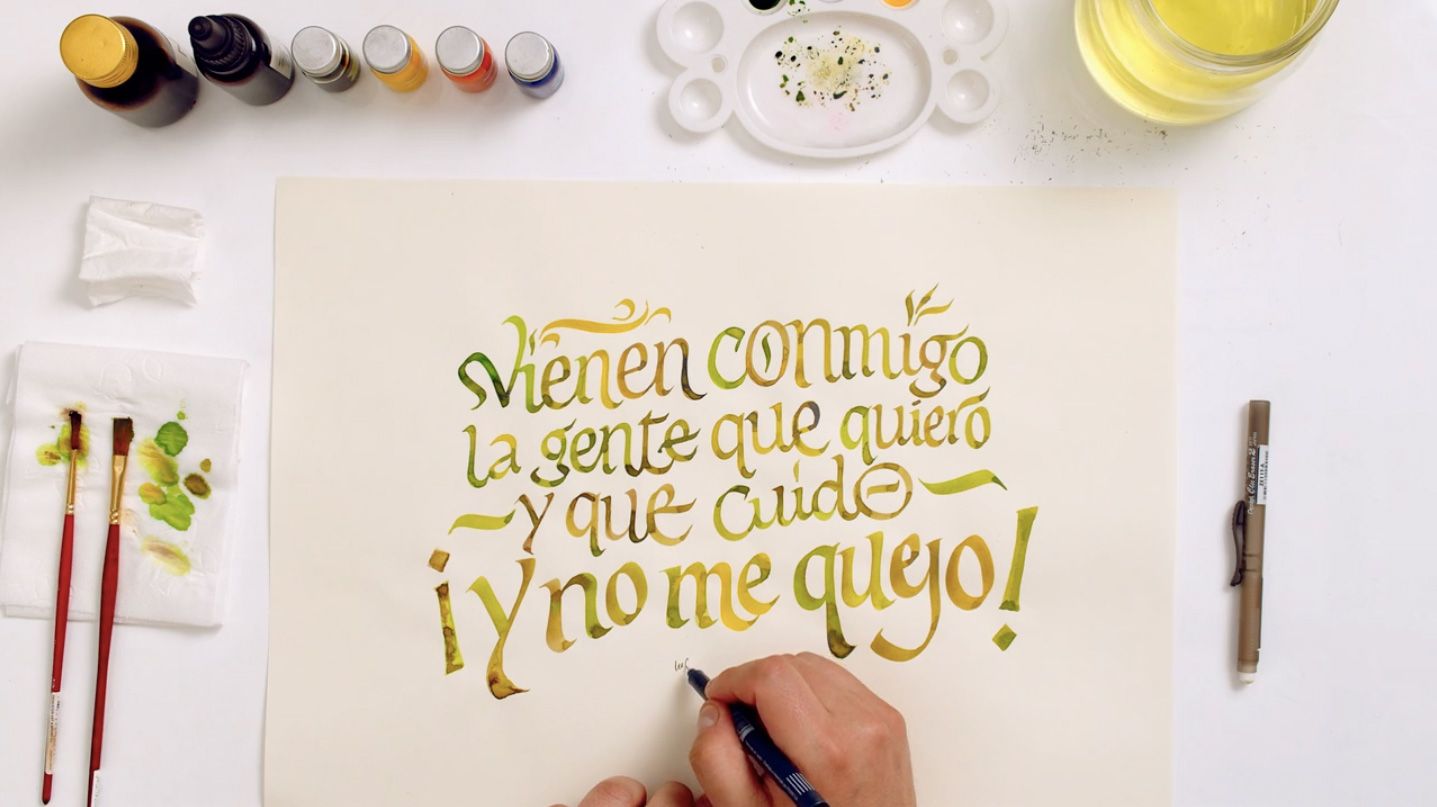 Vienen conmigo
la gente que quiero
y que cuido
¡y no me quejo!